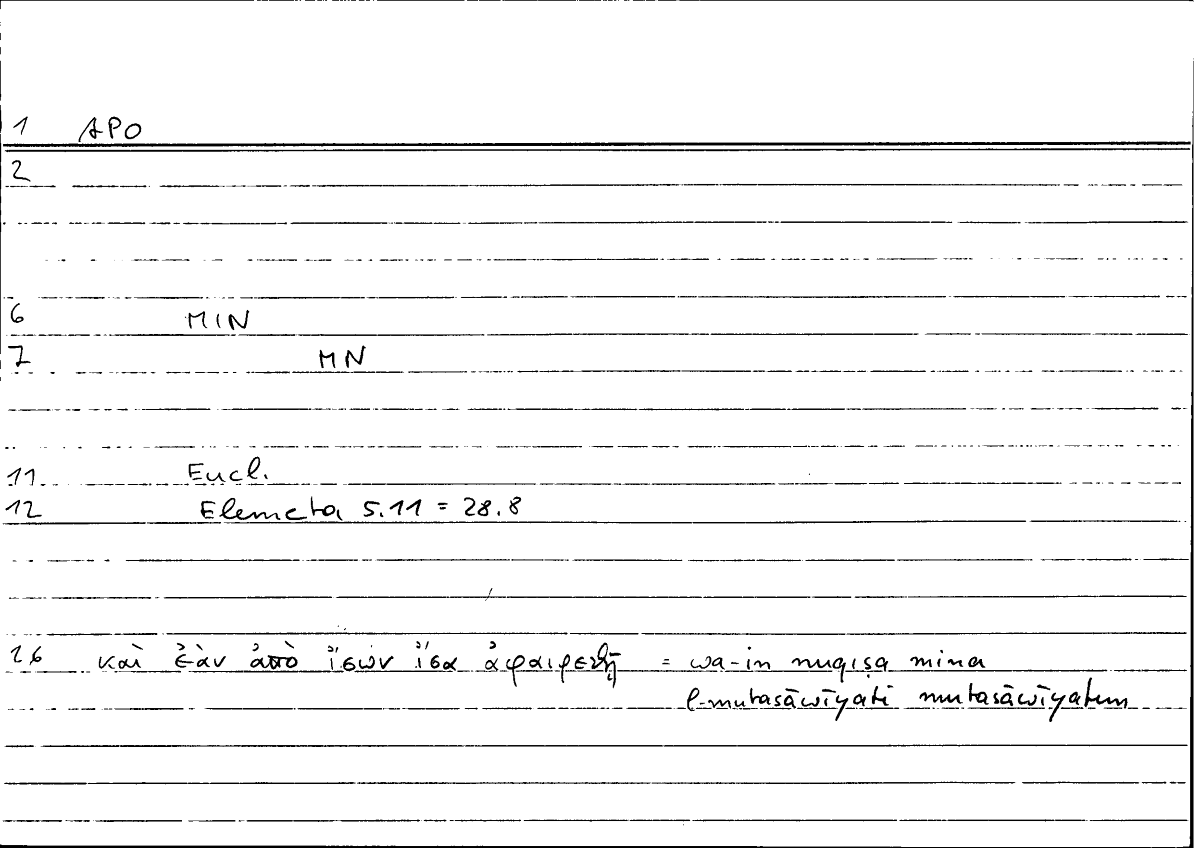 1 APO
2
6 MIN
7 MN
11 Eucl.
12 Elementa 5.11 = 28.8
26 καὶ ἐὰν ἀπὸ ἴσων ἴσα ἀφαιρεθῇ = wa-in nuqiṣa mina
l-mutasāwīyati mutasāwīyatun